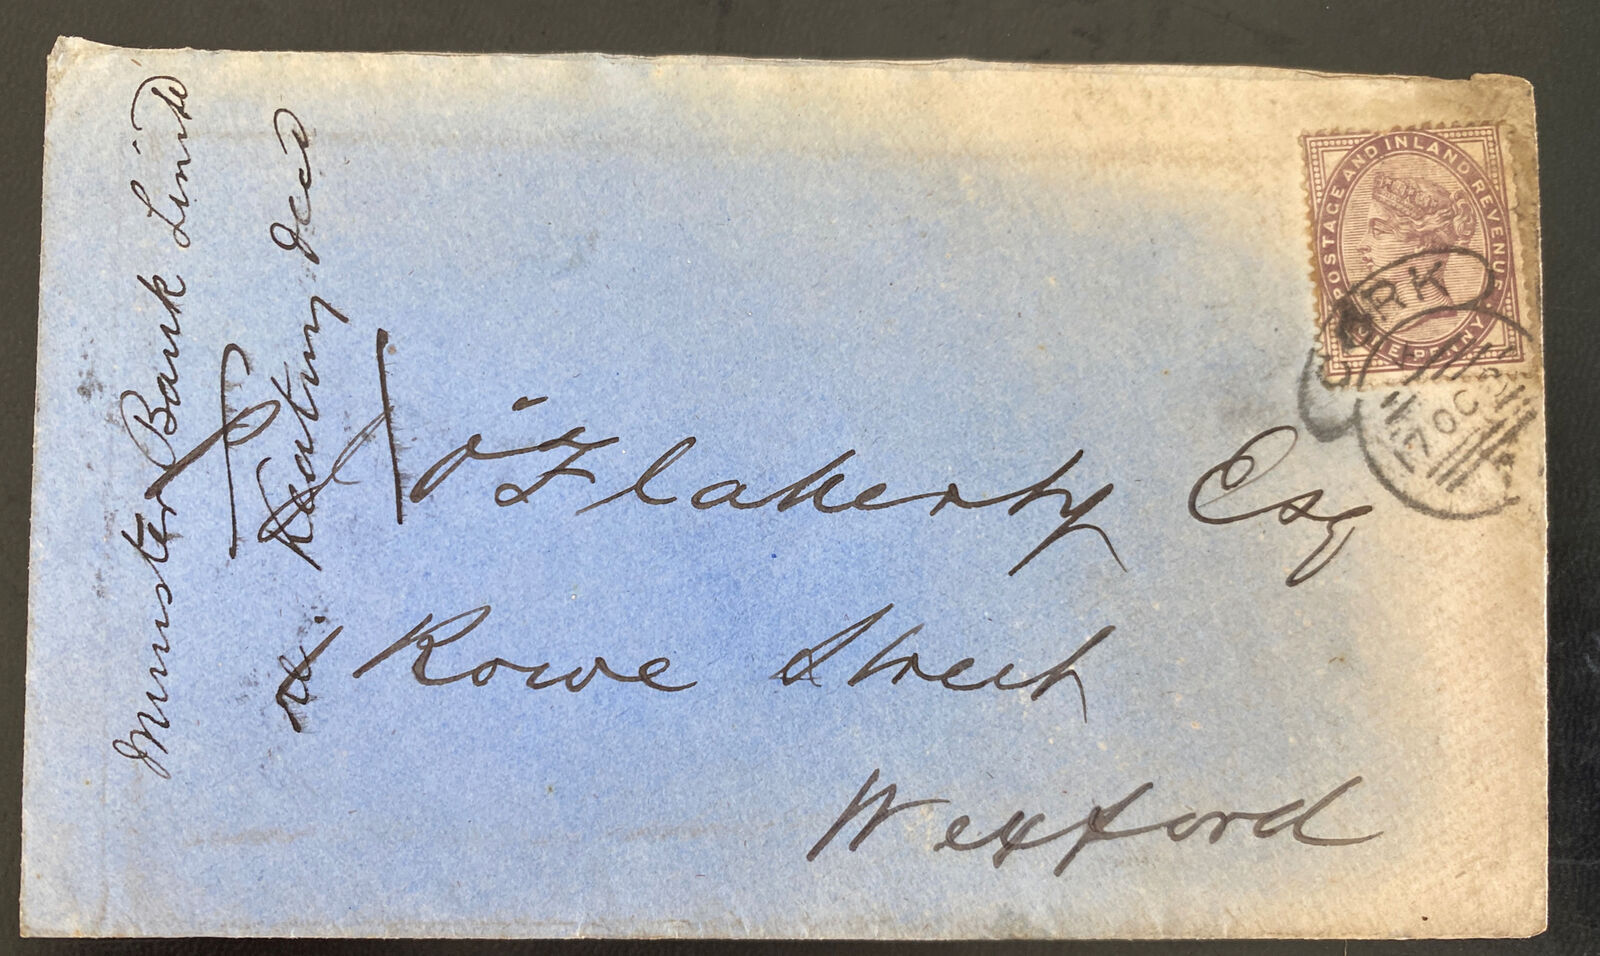 Munster Bank Limtd
Keating Decd
J J O'Flaherty Esq
Rowe Street
Wexford
POSTAGE AND INLAND REVENUE
ONE PENNY
CORK
7 OC